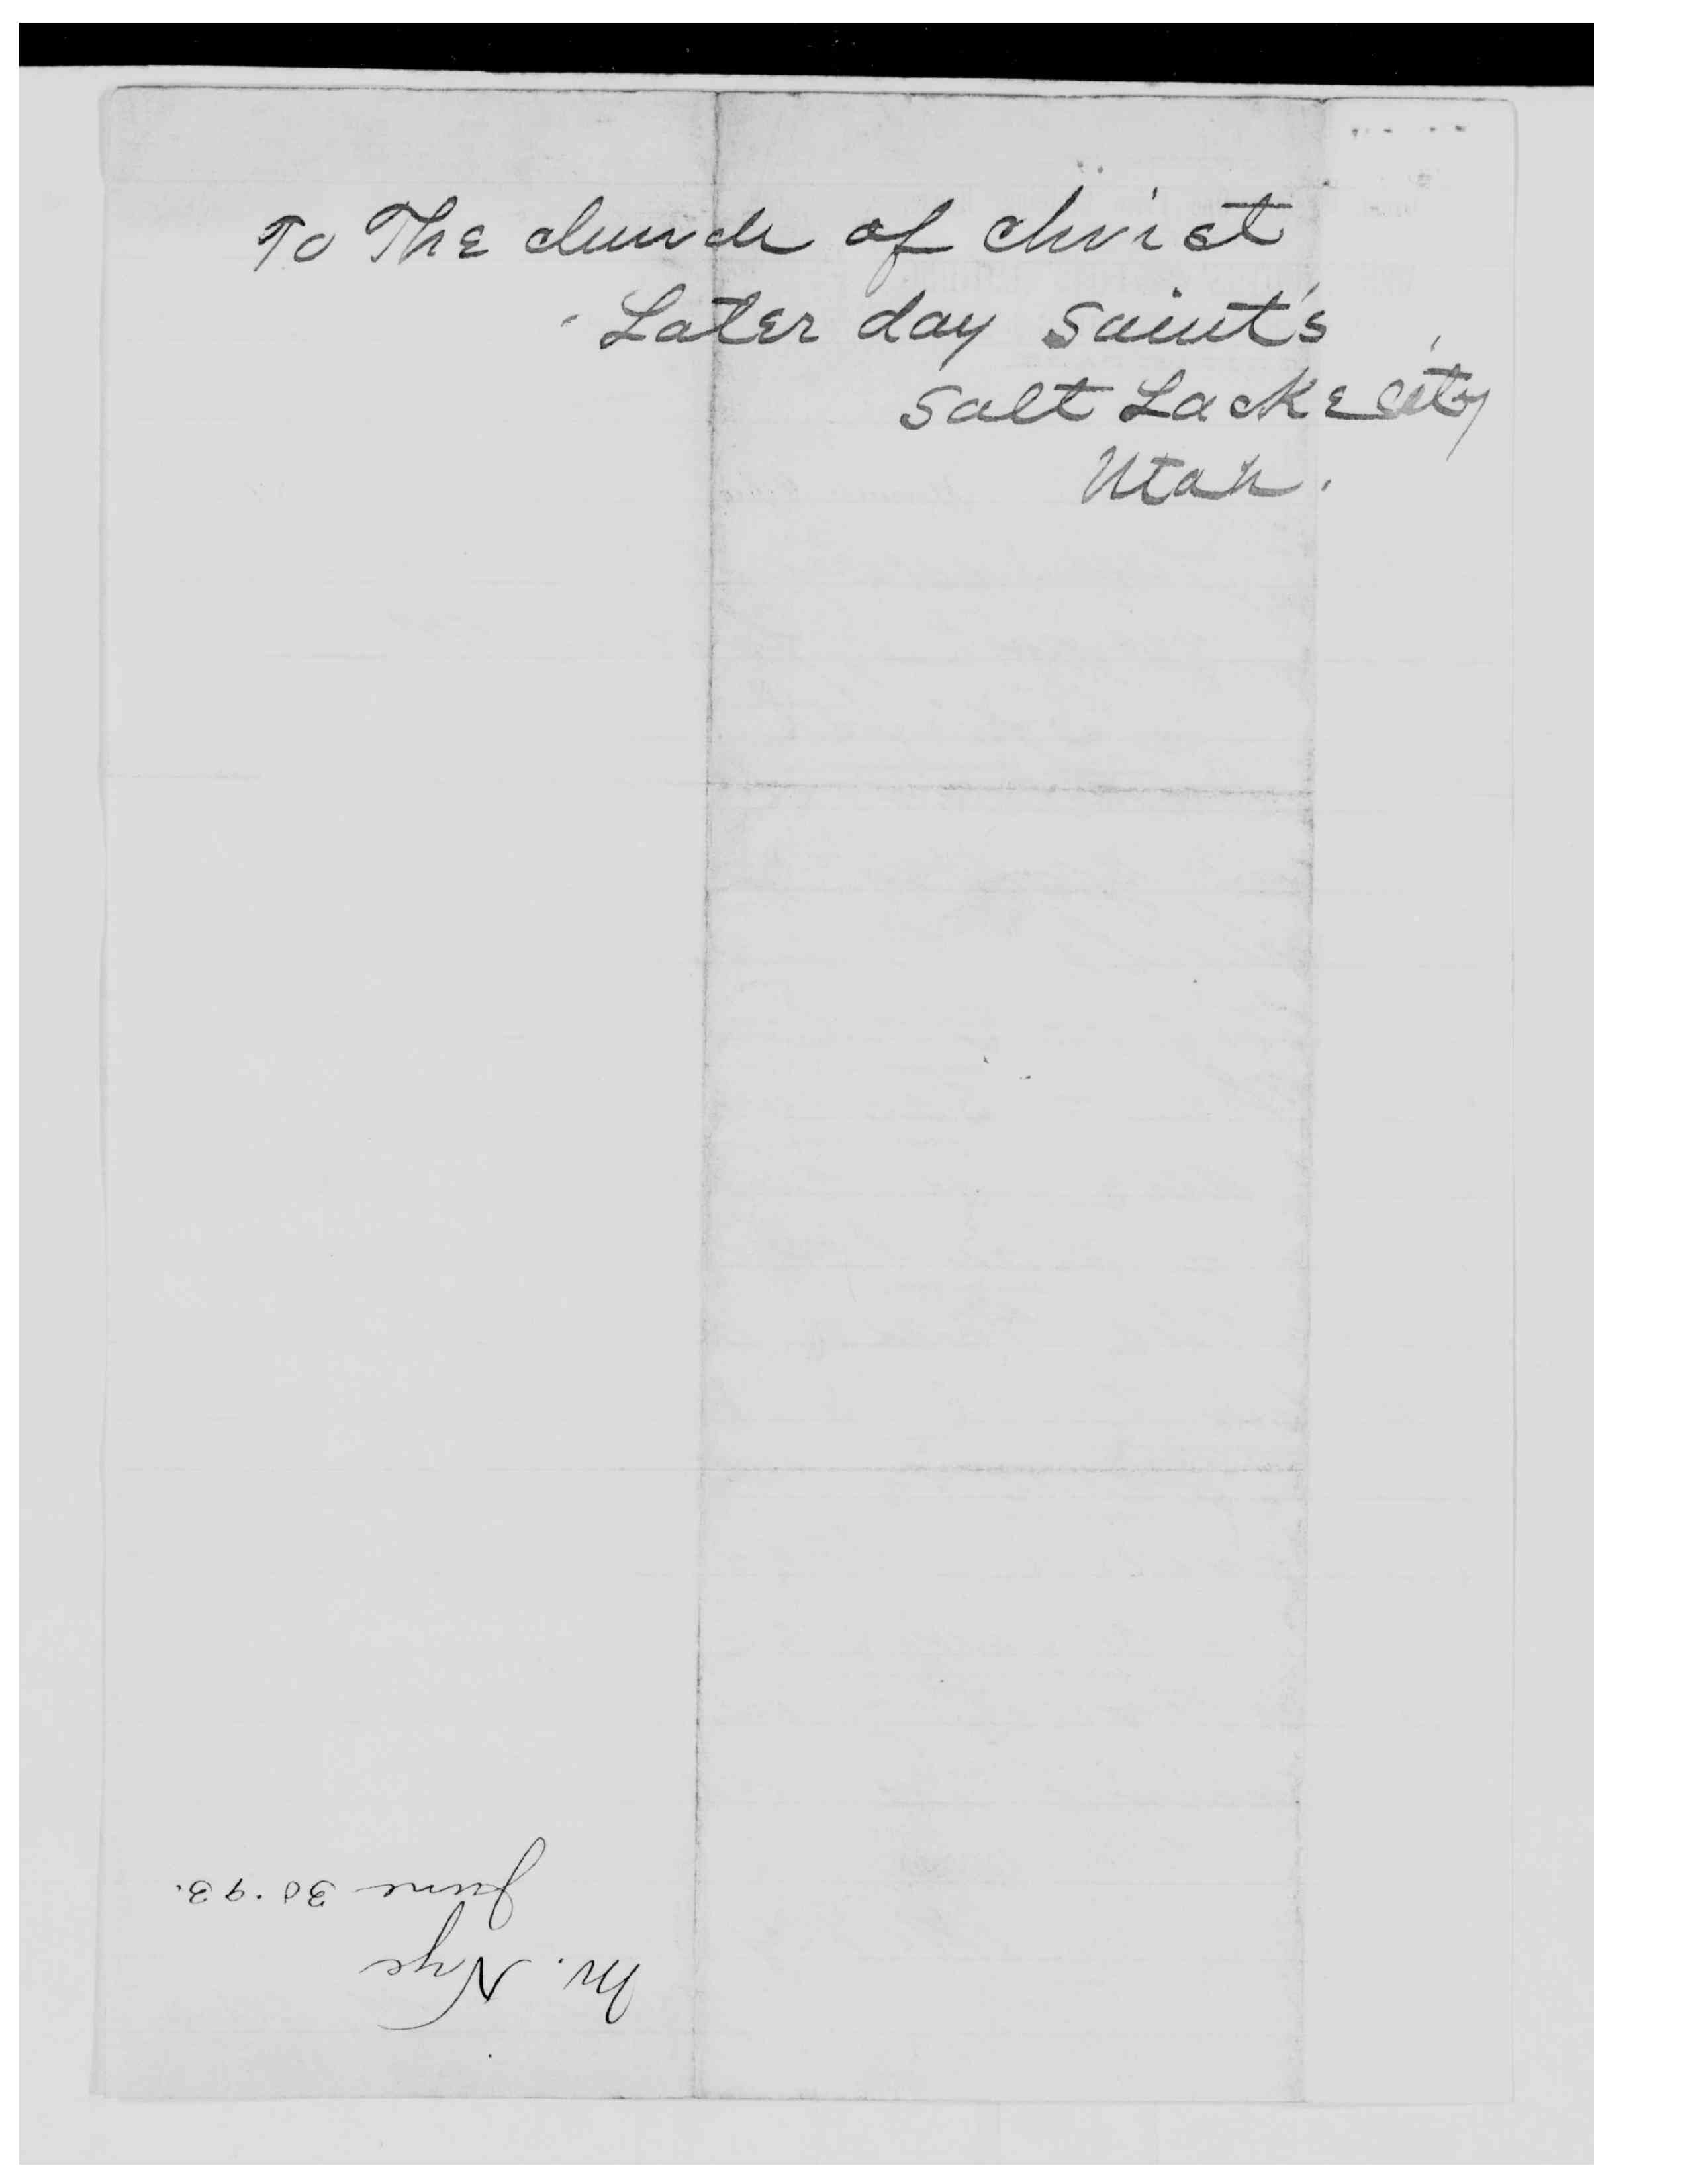 To The church of christ
Later day Saint's
Salt Lacke City
Utah.
M. Nye
June 30. 93.